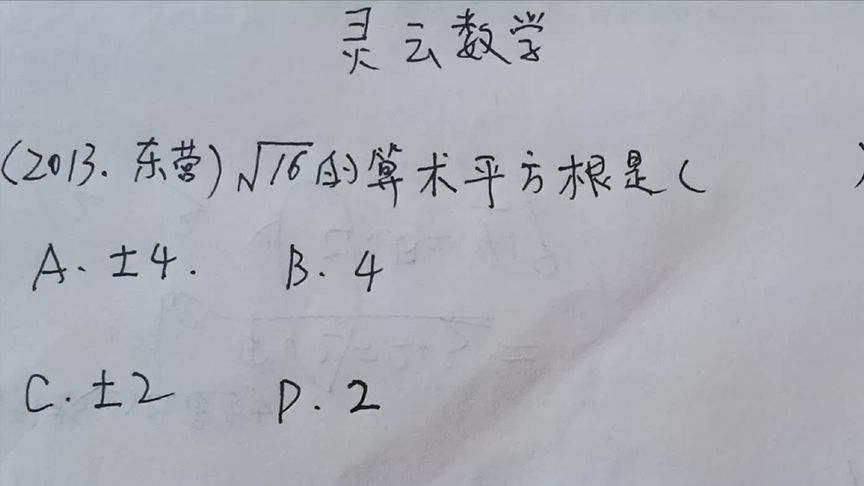 灵云数学
(2013.东营)√16的算术平方根是( )
A. ±4. B. 4
C. ±2 D. 2